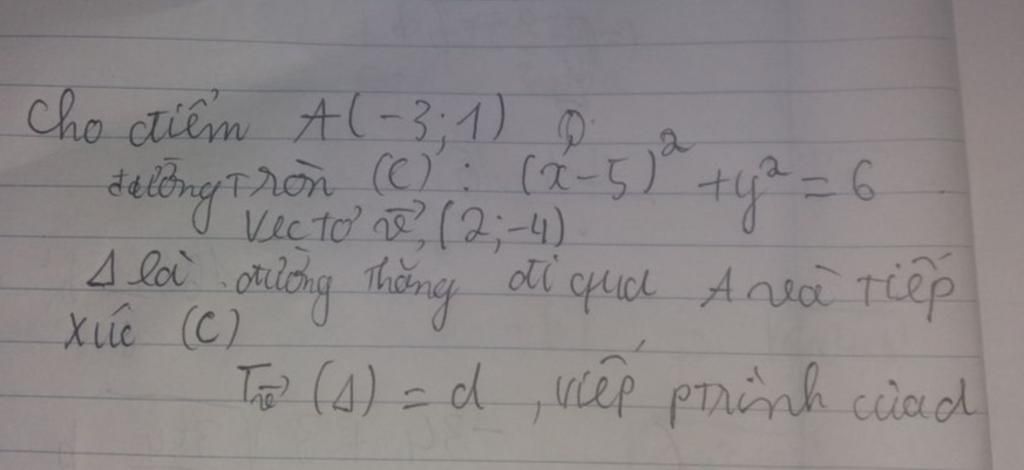 Cho điểm A(-3;1)
đường tròn (C) : (x-5)² + y² = 6
Vectơ v⃗, (2;-4)
Δ là đường thẳng đi qua A và tiếp
xúc (C)
T_v⃗ (Δ) = d , viếp ptrình của d